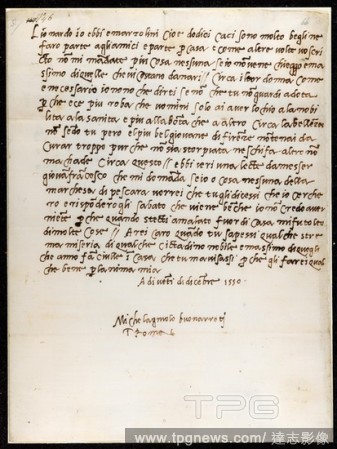 Lionardo io ebbi e marzolini cioe dodici caci sono molto begli ne
faro parte agli amici e parte p casa e come altre volte vo scri
cto no mi mandate piu cosa nessuna se io no ne chieggo e ma
ssimo di quelle che vi costano danari // Circa il tor donna come
e necessario io no no che dirti se no che tu no guardi a dota
p che e' e piu roba che uomini solo ai aver lochio a la nobi
lita a la sanita e piu alla bota che a altro Circa la bellezza
no sedo tu pero el piu bel giovane di Firenze no te nai da
curar troppo pur che no sia storpiata ne schifa altro no
ma chade Circa questo // ebbi ieri una lectera da messer
giovan fra cesco che mi domanda se io o cosa nessuna della
marchesa di pescara vorrei che tu gli dicessi che io cerche
ro e rispoderogli sabato che viene be che io no credo aver
niete p che quando stetti amalato fuor di casa mi fu tolto
di molte cose // A rei caro quado tu sapessi qualche stre
ma miseria di qualche cictadino nobile e massimo di quegli
che anno fa ciulle i casa che tu mavisassi p che gli farei qual
che bene p lanima mia
A di venti di dicebre 1550
Michelagniolo buonarroti
i Roma
TPG
www.tpgnews.com/ 達志影像